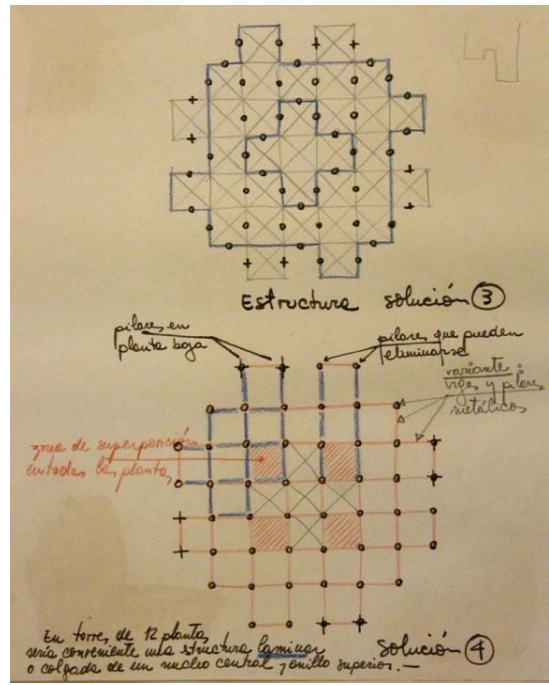 Estructura solución 3
pilares en
planta baja
pilares que pueden
eliminarse
variante:
vigas y pilares
metálicos
zona de superposición
en todas las plantas
En torres de 12 plantas
sería conveniente una structura laminar
o colgada de un nucleo central y anillo superior.—
Solución 4